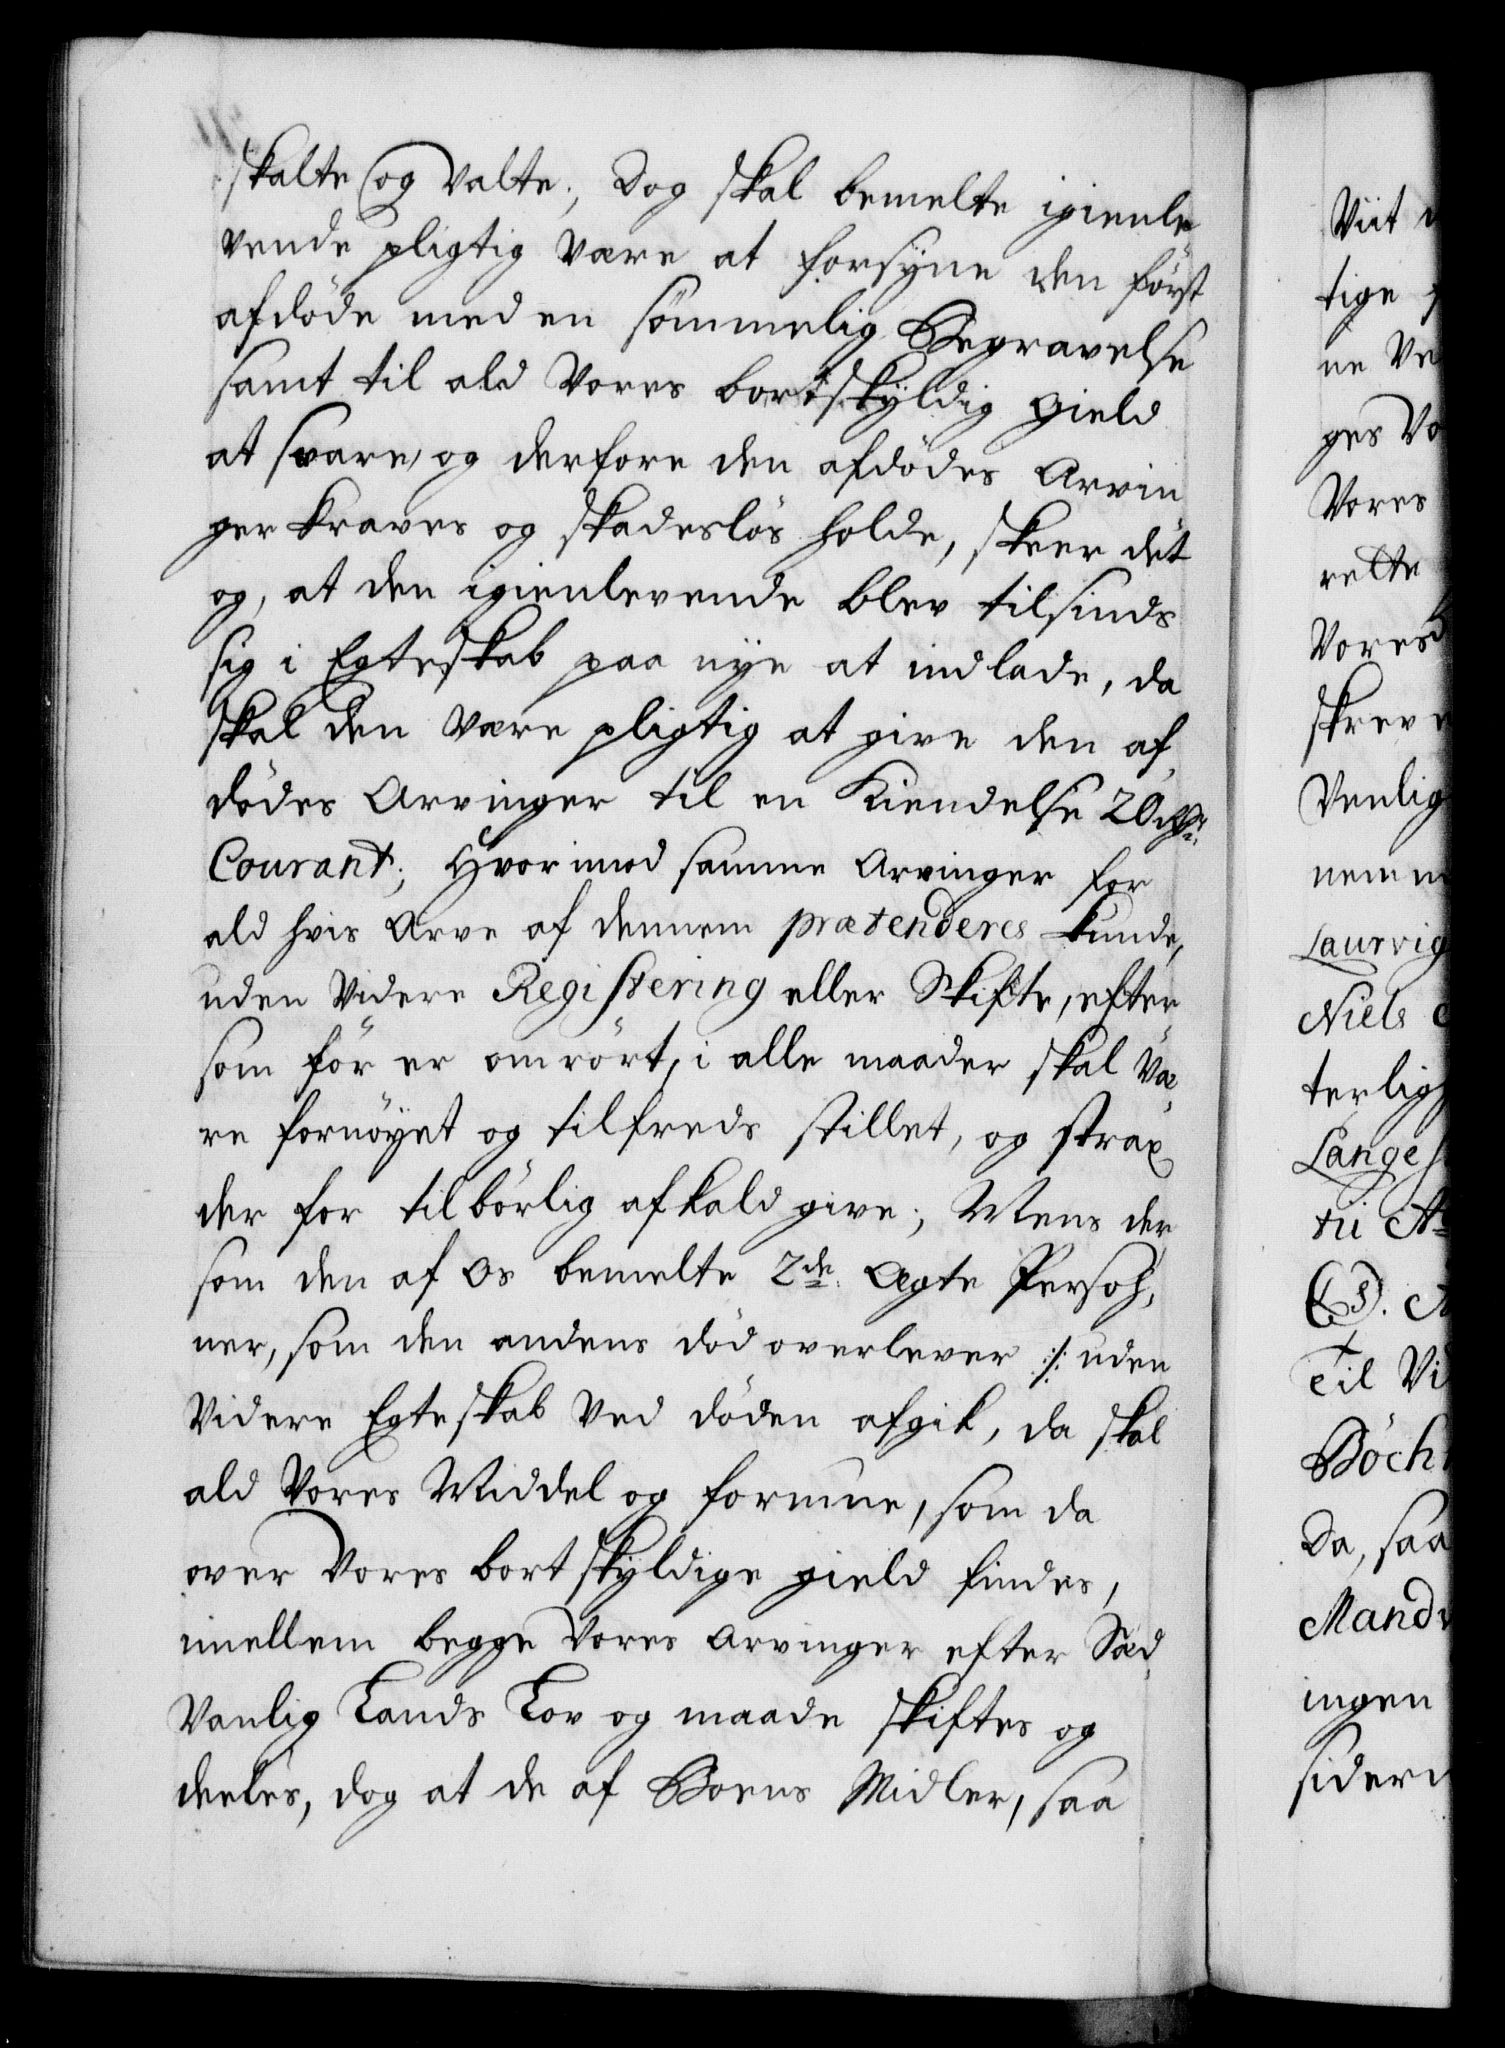 skalte og valte; Dog skal bemelte igienle
vende pligtig være at forsyne den först
afdöde med en sömmelig Begravelse
samt til ald Vores bortskyldig gield
at svare, og derfore den afdödes Arvin
ger kraves og skadeslös holde, skeer det
og, at den igienlevende blev tilsinds
sig i Egteskab paa nye at indlade, da
skal den være pligtig at give den af,
dödes Arvinger til en Kiendelse 20 rdr
Courant; Hvorimod samme Arvinger for
ald hvis Arve af dennem prætenderes kunde,
uden videre Registering eller Skifte, efter
som för er omrört, i alle maader skal Væ,
re fornöyet og tilfreds stillet, og strax
der for tilbörlig afkald give; Mens der
som den af os bemelte 2de Ægte Persoh,
ner, som den andens död overlever ./. uden
Videre Egteskab ved döden afgik, da skal
ald Vores Middel og formue, som da
over Vores bortskyldige gield findes,
imellem begge Vores Arvinger efter Sæd,
Vanlig Lands Lov og maade skiftes og
deeles, dog at de af Boens Midler, saa
Viit
tige
ne Ve
ges Vo
Vores
rette
Vores
skreve
Venlig
nem
Laurvig
Niels
terlig
Lange
tii A
(LS). A
Til Vi
Böch
Da, saa
Mand
ingen
sider